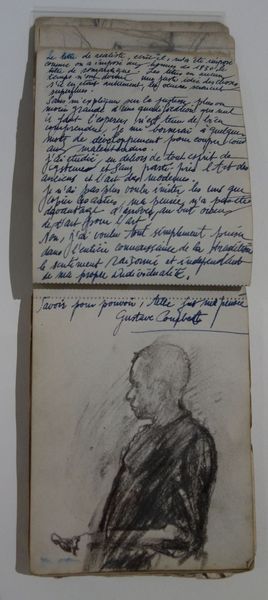 Le titre de réaliste, écrit-il, m'a été imposé
comme on a imposé aux hommes de 1830 le
titre de romantiques. Les titres en aucun
temps n'ont donné une juste idée des choses
s'il en était autrement, les œuvres seraient
superflues.
Sans m'expliquer sur la justesse plus ou
moins grande d'une qualification que nul
il faut l'espérer, n'est tenu de bien
comprendre, je me bornerai à quelques
mots de développement pour couper court
aux malentendus.
J'ai étudié, en dehors de tout esprit de
système et sans parti pris l'Art des
anciens et l'art des modernes.
Je n'ai pas plus voulu imiter les uns que
copier les autres, ma pensée n'a pas été
davantage d'arriver au but oiseux
de l'art pour l'art.
Non, j'ai voulu tout simplement puiser
dans l'entière connaissance de la tradition
le sentiment raisonné et indépendant
de ma propre Individualité.
Savoir pour pouvoir, telle fut ma pensée
Gustave Courbet